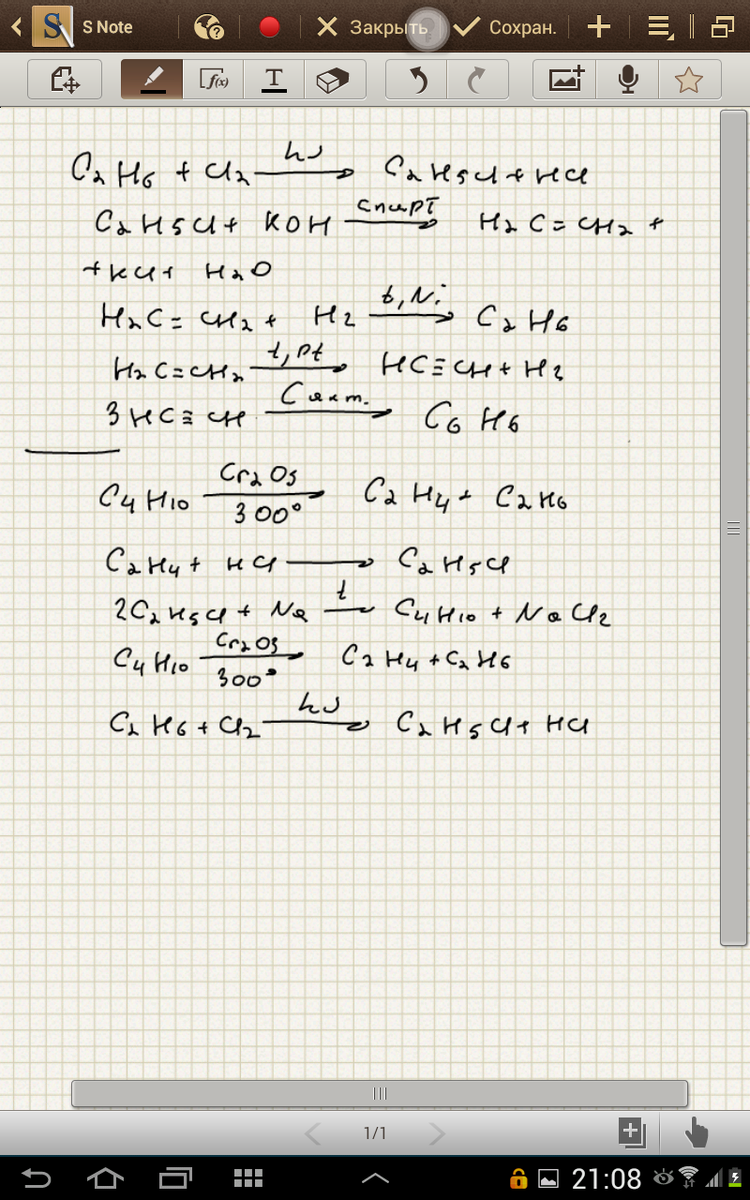 S Note
Закрыть
Сохран.
f(x)
T
C₂H₆ + Cl₂ —hν→ C₂H₅Cl + HCl
C₂H₅Cl + KOH —спирт→ H₂C=CH₂ +
+ KCl + H₂O
H₂C=CH₂ + H₂ —t, Ni→ C₂H₆
H₂C=CH₂ —t, Pt→ HC≡CH + H₂
3HC≡CH —C акт.→ C₆H₆
C₄H₁₀ —Cr₂O₃ / 300°→ C₂H₄ + C₂H₆
C₂H₄ + HCl → C₂H₅Cl
2C₂H₅Cl + Na —t→ C₄H₁₀ + NaCl₂
C₄H₁₀ —Cr₂O₃ / 300°→ C₂H₄ + C₂H₆
C₂H₆ + Cl₂ —hν→ C₂H₅Cl + HCl
1/1
21:08